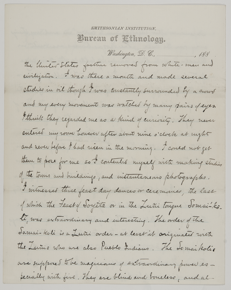 SMITHSONIAN INSTITUTION
Bureau of Ethnology,
Washington, D. C. , 188
the United States further removed from white men and
civilization. I was there a month and made several
studies in oil though I was constantly surrounded by a crowd
and my every movement was watched by many pairs of eyes
I think they regarded me as a kind of curiosity. They never
entered my room however after about nine o'clock at night
and never before I had risen in the morning. I could not get
them to pose for me so I contented myself with making studies
of the town and buildings, and instantaneous photographs.
I witnessed three great day dances or ceremonies, the last
of which the Feast of or in the tongue
was extraordinary and interesting. The order of the
is a order at least it originated with
the who are also Pueblo Indians. The
was supposed to be magicians of extraordinary power es-
pecially with fire. They are blind and, and at